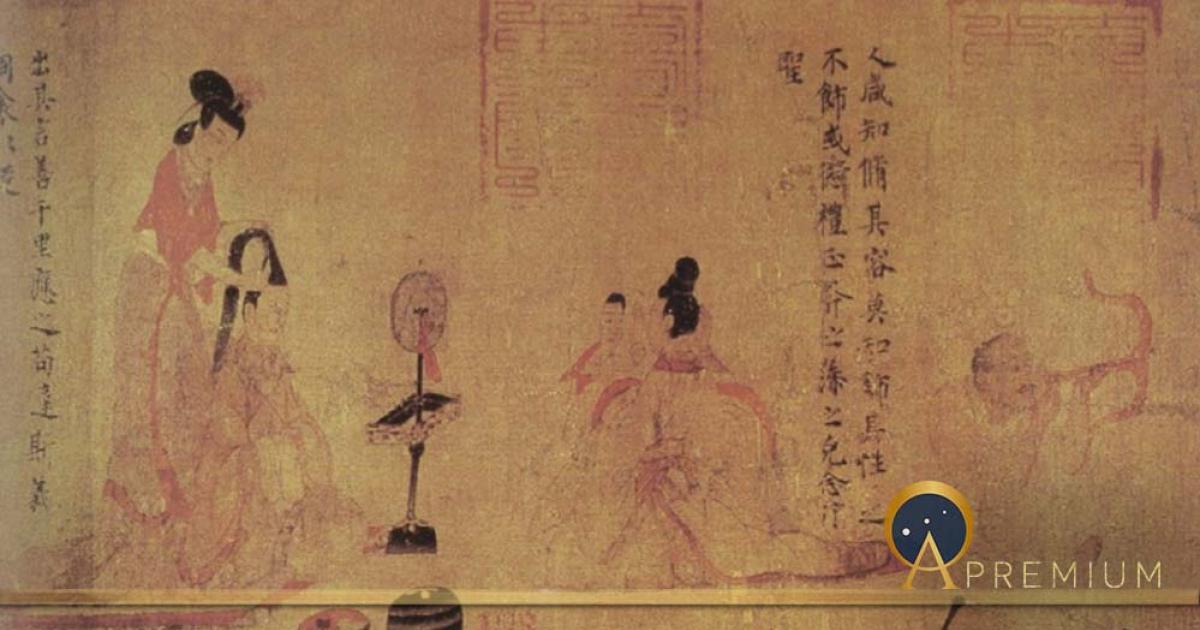 人咸知脩其容莫知飾其性之
不飾或愆禮正斧之藻之克念作
聖
出其言善千里應之苟違斯義
APREMIUM